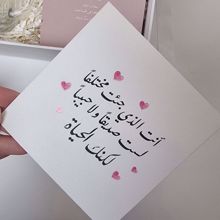 أنت الذي جئت مختلفاً
لست صديقاً ولا حبيباً
لكنك الحياة